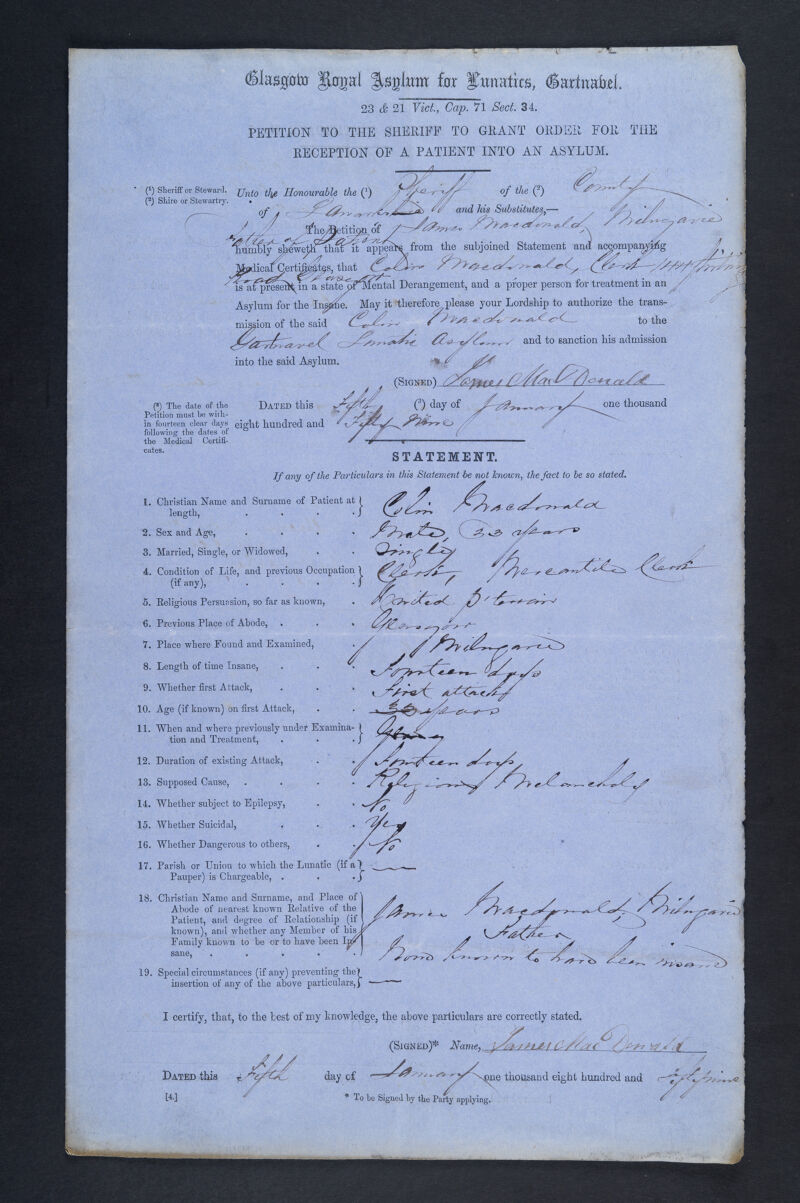 Glasgow Royal Asylum for Lunatics, Gartnabel.
23 & 21 Vict., Cap. 71 Sect. 34.
PETITION TO THE SHERIFF TO GRANT ORDER FOR THE
RECEPTION OF A PATIENT INTO AN ASYLUM.
(1) Sheriff or Steward.
(2) Shire or Stewartry.
Unto the Honourable the (1) Sheriff of the (2) County
of Lanarkshire and his Substitutes,—
The Petition of James Macdonald, Milngavie
Father of Patient
humbly sheweth that it appears from the subjoined Statement and accompanying
Medical Certificates, that Colin Macdonald, Clerk
Road Glasgow
is at present in a state of Mental Derangement, and a proper person for treatment in an
Asylum for the Insane. May it therefore please your Lordship to authorize the trans-
mission of the said Colin Macdonald to the
Gartnavel Lunatic Asylum and to sanction his admission
into the said Asylum.
(SIGNED) James MacDonald
(3) The date of the
Petition must be with-
in fourteen clear days
following the dates of
the Medical Certifi-
cates.
DATED this Fifth (3) day of January one thousand
eight hundred and Fifty Nine
STATEMENT.
If any of the Particulars in this Statement be not known, the fact to be so stated.
1. Christian Name and Surname of Patient at
length, Colin Macdonald
2. Sex and Age, Male, 33 years
3. Married, Single, or Widowed, Single
4. Condition of Life, and previous Occupation
(if any), Clerk, Mercantile Clerk
5. Religious Persuasion, so far as known, United P'terian
6. Previous Place of Abode, Glasgow
7. Place where Found and Examined, Milngavie
8. Length of time Insane, Fourteen days
9. Whether first Attack, First attack
10. Age (if known) on first Attack, 33 years
11. When and where previously under Examina-
tion and Treatment,
12. Duration of existing Attack, Fourteen days
13. Supposed Cause, Religious Melancholy
14. Whether subject to Epilepsy, No
15. Whether Suicidal, Yes
16. Whether Dangerous to others, No
17. Parish or Union to which the Lunatic (if a
Pauper) is Chargeable, —
18. Christian Name and Surname, and Place of
Abode of nearest known Relative of the
Patient, and degree of Relationship (if
known), and whether any Member of his
Family known to be or to have been In-
sane,
James Macdonald, Milngavie
Father
None known to have been insane
19. Special circumstances (if any) preventing the
insertion of any of the above particulars, —
I certify, that, to the best of my knowledge, the above particulars are correctly stated.
(SIGNED)* Name, James MacDonald
DATED this Fifth day of January one thousand eight hundred and fifty nine
[4.]
* To be Signed by the Party applying.